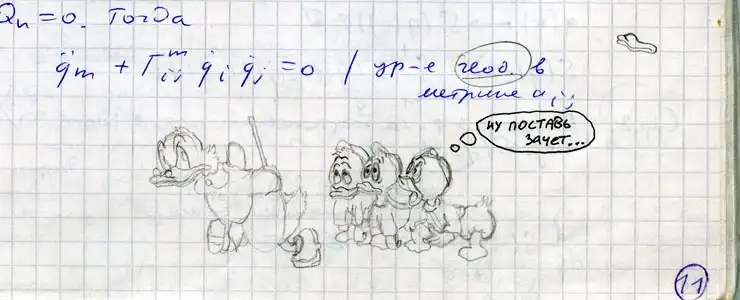 Qn = 0. Тогда
q̈m + Γᵐij q̇i q̇j = 0 / ур-е геод. в
метрике aij
ну поставь
зачет...
11